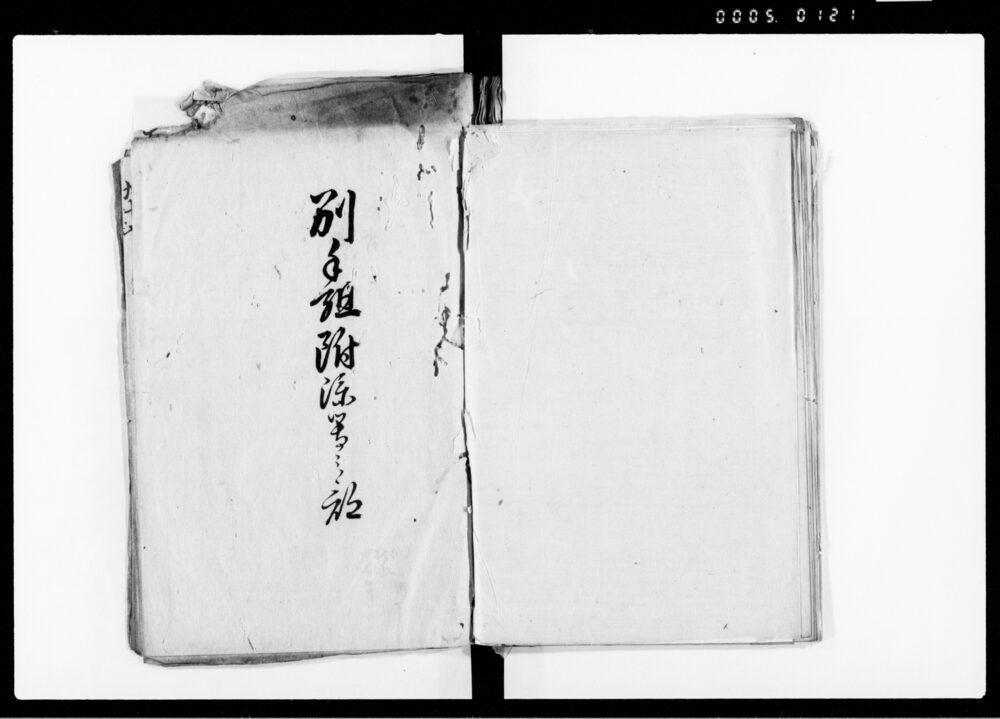 0005.0121
別手組附添等之部